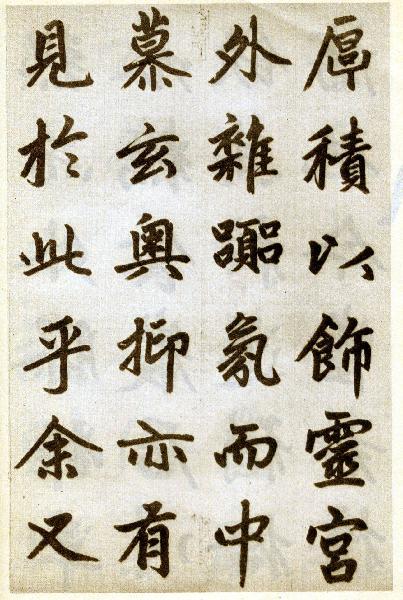 積以飾靈宮
外雜囂氛而中
慕玄奧抑亦有
見於此乎余又